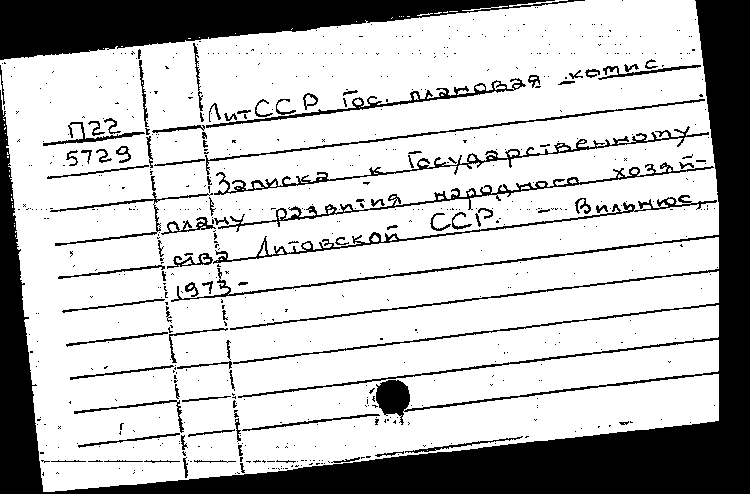 ЛитССР. Гос. плановая комис.
П22
5729
Записка к Государственному
плану развития народного хозяй-
ства Литовской ССР. - Вильнюс,
1973-